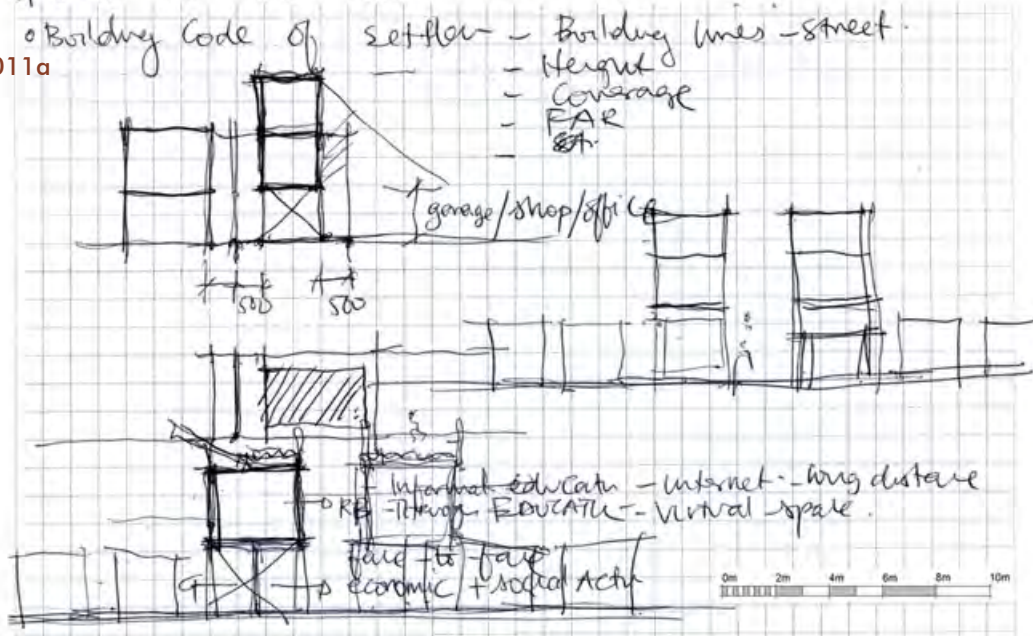 • Building Code of settlem – Building lines – street.
011a
– Height
– Coverage
– FAR
garage/shop/office
500
500
– Informal educatn – internet – long distance
– Through EDUCATN – virtual space.
face – to – face
economic + social Actn
0m 2m 4m 6m 8m 10m